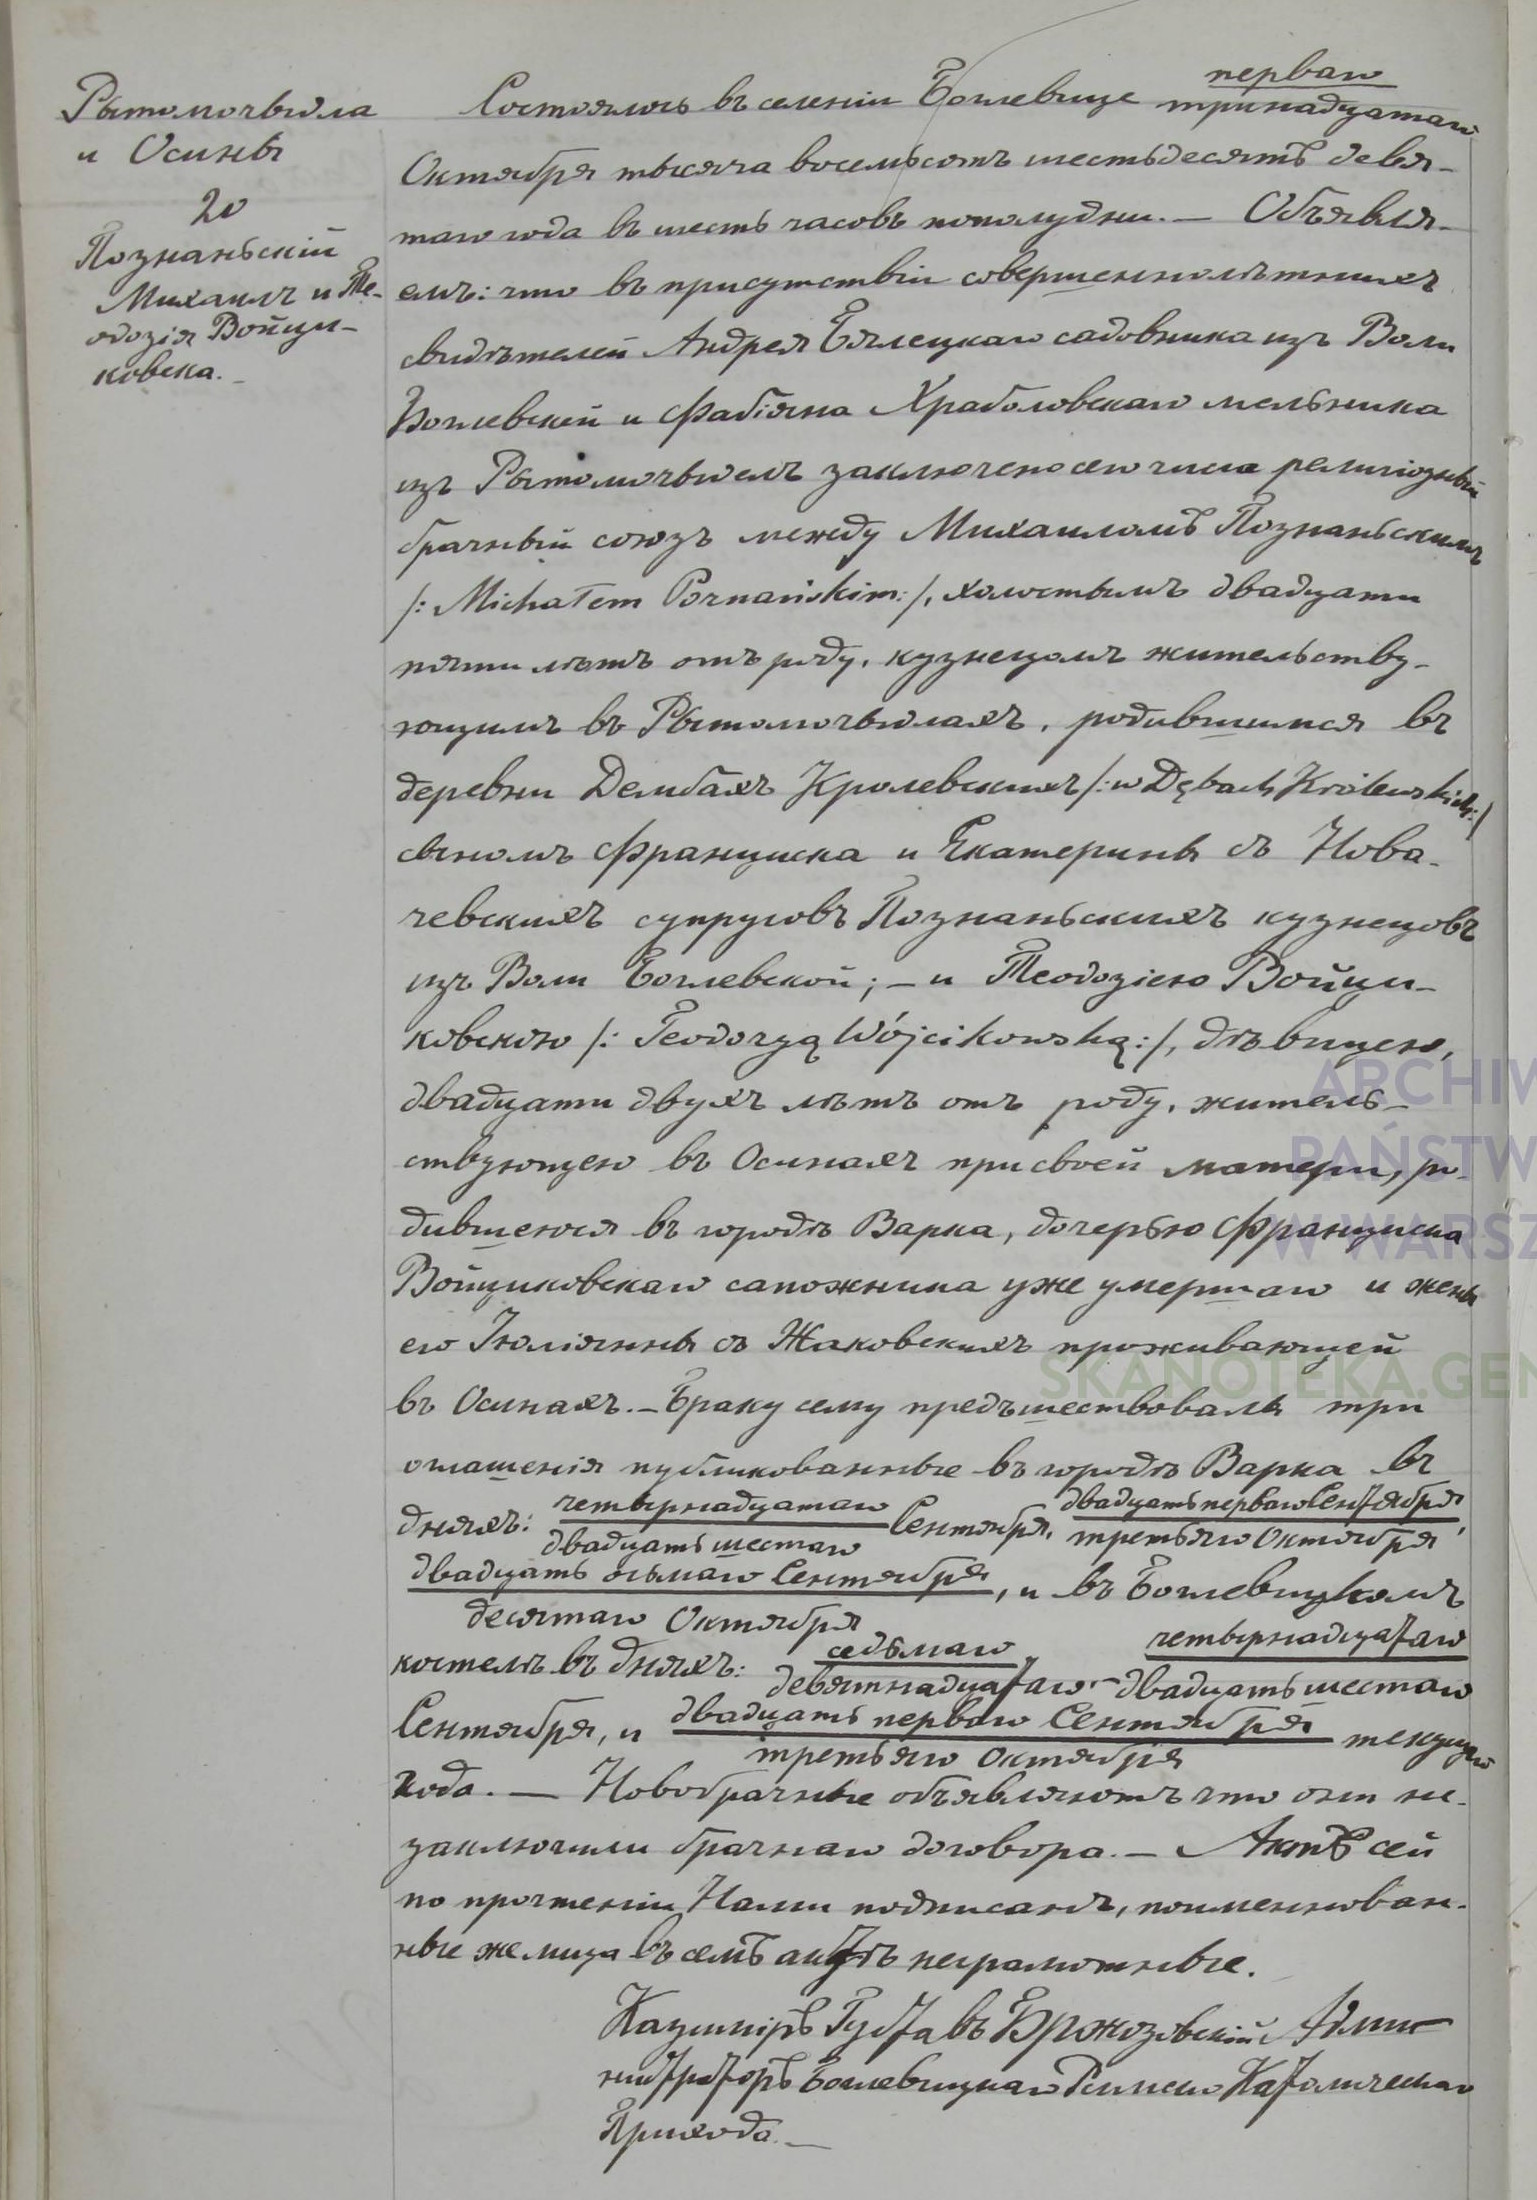 Рытомочидла
и Осины
20
Познаньскій
Михаилъ и Те-
одозія Войци-
ковска. -
Состоялось въ селеніи Боглевице первого
тринадцатаго
Октября тысяча восемьсотъ шестьдесятъ девя-
таго года въ шесть часовъ пополудни. — Объявля-
емъ: что въ присутствіи совершеннолѣтнихъ
свидѣтелей Андрея Бялецкаго садовника изъ Воли
Боглевской и Фабіяна Храболовскаго мельника
изъ Рытомочидлъ заключено сего числа религіозный
брачный союзъ между Михаиломъ Познаньскимъ
/: Michałem Poznańskim :/, холостымъ двадцати
пяти лѣтъ отъ роду, кузнецомъ жительству-
ющимъ въ Рытомочидлахъ, родившимся въ
деревни Дембахъ Кролевскихъ /: w Dębach Królewskich :/
сыномъ Франциска и Екатерины съ Нова-
чевскихъ супруговъ Познаньскихъ кузнецовъ
изъ Воли Боглевской; — и Теодозіею Войци-
ковскою /: Teodozyą Wójcikowską :/, дѣвицею,
двадцати двухъ лѣтъ отъ роду, житель-
ствующею въ Осинахъ при своей матери, ро-
дившеюся въ городѣ Варка, дочерью Франциска
Войциковскаго сапожника уже умершаго и жены
его Юліянны съ Жаковскихъ проживающей
въ Осинахъ. — Браку сему предъшествовали три
оглашенія публикованные въ городѣ Варка въ
дняхъ: четырнадцатаго
двадцать шестаго Сентября, двадцать перваго Сентября
третьяго Октября,
двадцать осьмаго Сентября
десятаго Октября, и въ Боглевицкомъ
костелѣ въ дняхъ: седьмаго
девятнадцатаго, — четырнадцатаго
двадцать шестаго
Сентября, и двадцать перваго Сентября
третьяго Октября текущаго
года. — Новобрачные объявляютъ что они не-
заключили брачнаго договора. — Актъ сей
по прочтеніи Нами подписанъ, поименован-
ные же лица въ семъ актѣ неграмотные.
Казиміръ Густавъ Бржозовскій Адми-
нистраторъ Боглевицкаго Римско Католическаго
Прихода. —
ARCHIW
PAŃSTW
W WARSZ
SKANOTEKA.GEN